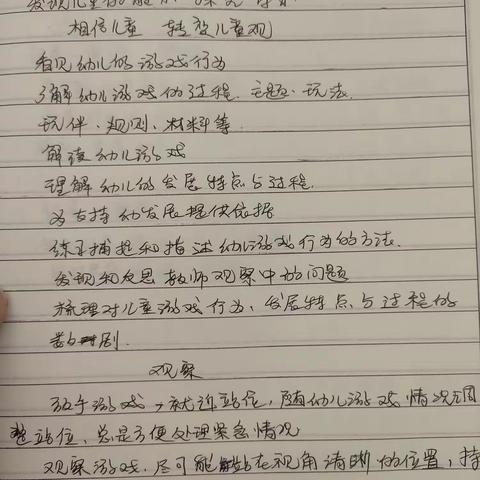 发现儿童的能
相信儿童 转变儿童观
看见幼儿的游戏行为
了解幼儿游戏的过程、主题、玩法、
玩伴、规则、材料等
解读幼儿游戏
理解幼儿的发展特点与过程.
为支持幼发展提供依据
练习捕捉和描述幼儿游戏行为的方法.
发现和反思教师观察中的问题
梳理对儿童游戏行为、发展特点与过程的
观察
放手游戏,就近站位,随幼儿游戏情况调
整站位,总是方便处理紧急情况
观察游戏.尽可能站在视角清晰的位置,持